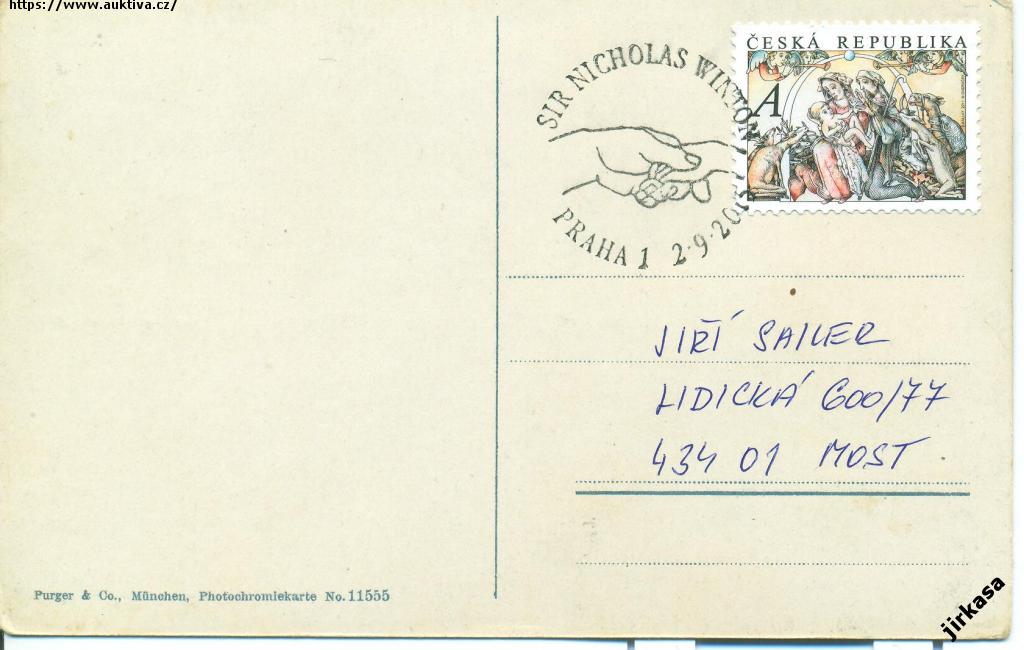 https://www.auktiva.cz/
SIR NICHOLAS WINTON
PRAHA 1 2-9-2015
ČESKÁ REPUBLIKA
A
JIŘÍ SAILER
LIDICKÁ 600/77
434 01 MOST
Purger & Co., München, Photochromiekarte No. 11555
jirkasa